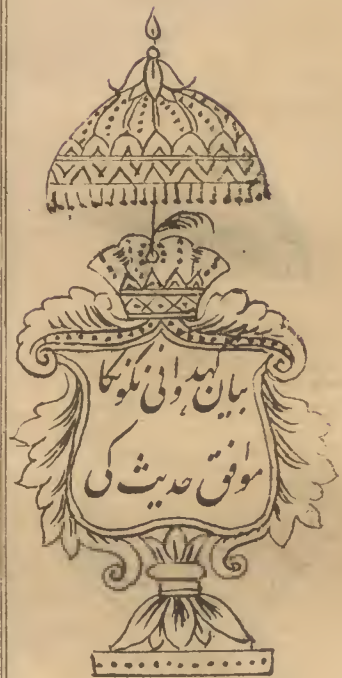 بیان کہدوانی نگونکا
موافق حدیث کی